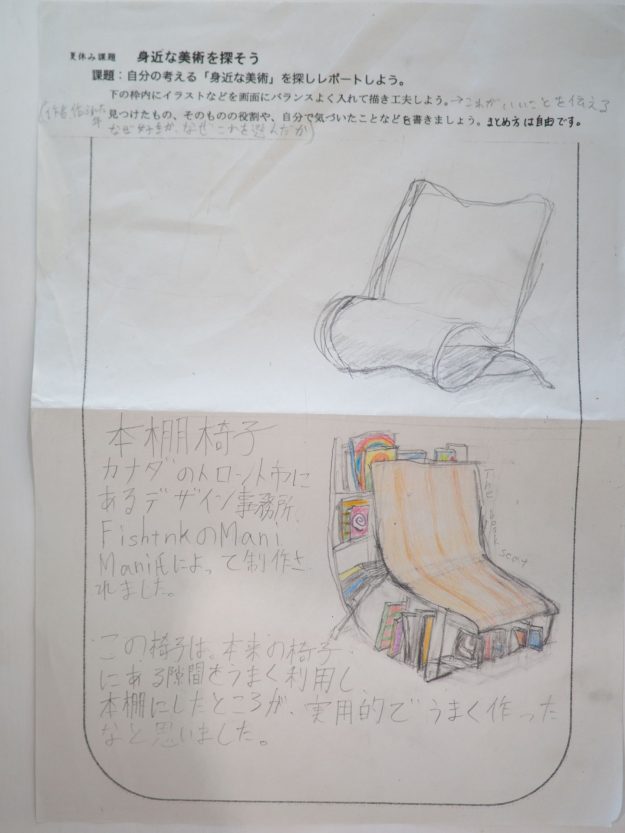 夏休み課題　身近な美術を探そう
課題：自分の考える「身近な美術」を探しレポートしよう。
下の枠内にイラストなどを画面にバランスよく入れて描き工夫しよう。→これがいいことを伝える
見つけたもの、そのものの役割や、自分で気づいたことなども書きましょう。まとめ方は自由です。
なぜ好きか、なぜこれを選んだか)
本棚椅子
カナダのトロント市に
あるデザイン事務所、
FishtnkのMani
Mani氏によって制作さ
れました。
The book seat
この椅子は、本来の椅子
にある隙間をうまく利用し、
本棚にしたところが、実用的でうまく作った
なと思いました。